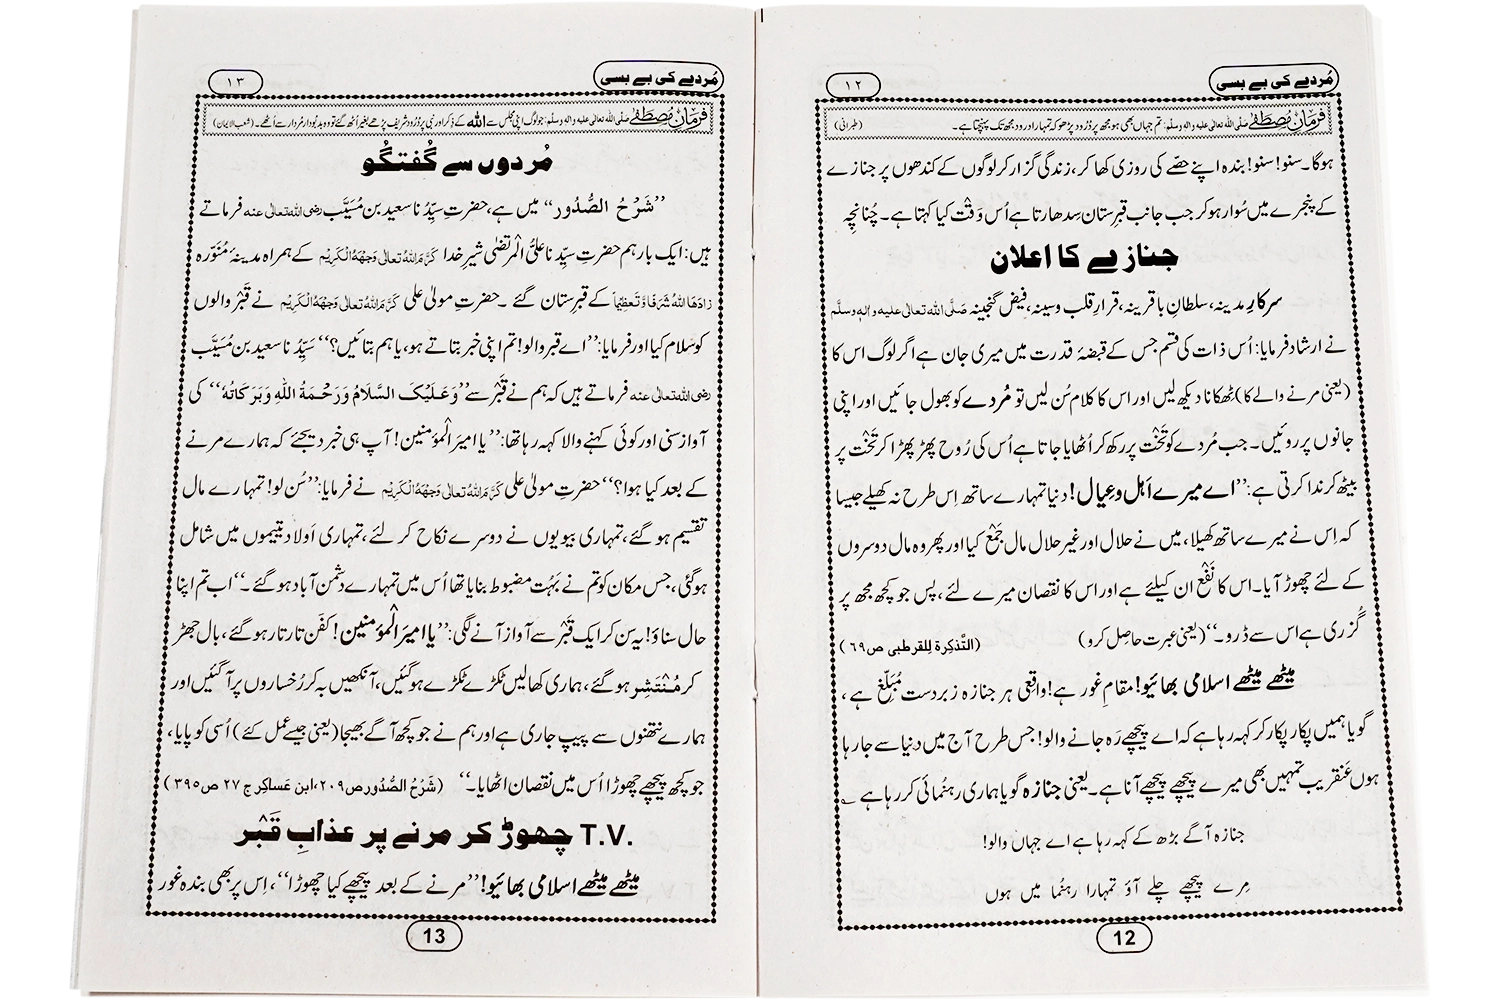 مُردے کی بے بسی
۱۲
فرمانِ مُصطَفٰے صلی اللہ تعالٰی علیہ واٰلہ وسلم: تم جہاں بھی ہو مجھ پر دُرُود پڑھو کہ تمہارا دُرود مجھ تک پہنچتا ہے۔ (طبرانی)
ہوگا۔ سنو! سنو! بندہ اپنے حصّے کی روزی کھا کر، زندگی گزار کر لوگوں کے کندھوں پر جنازے
کے پنجرے میں سُوار ہو کر جب جانبِ قبرستان سِدھارتا ہے اُس وَقْت کیا کہتا ہے۔ چُنانچِہ
جنازے کا اعلان
سرکارِ مدینہ، سلطانِ باقرینہ، قرارِ قلب و سینہ، فیض گنجینہ صَلَّی اللہ تعالٰی علیہ واٰلہٖ وسلَّم
نے ارشاد فرمایا: اُس ذات کی قسم جس کے قبضۂ قدرت میں میری جان ہے اگر لوگ اس کا
(یعنی مرنے والے کا) ٹِھکانا دیکھ لیں اور اس کا کلام سُن لیں تو مُردے کو بھول جائیں اور اپنی
جانوں پر روئیں۔ جب مُردے کو تَخْت پر رکھ کر اُٹھایا جاتا ہے اُس کی رُوح پھڑ پھڑا کر تَخْت پر
بیٹھ کر ندا کرتی ہے: ’’اے میرے اَہل و عِیال! دنیا تمہارے ساتھ اِس طرح نہ کھیلے جیسا
کہ اِس نے میرے ساتھ کھیلا، میں نے حلال اور غیر حلال مال جَمْع کیا اور پھر وہ مال دوسروں
کے لئے چھوڑ آیا۔ اس کا نَفْع ان کیلئے ہے اور اس کا نقصان میرے لئے، پس جو کچھ مجھ پر
گُزری ہے اس سے ڈرو۔‘‘ (یعنی عبرت حاصِل کرو) (التَّذکِرۃ لِلقرطبی ص۶۹)
میٹھے میٹھے اسلامی بھائیو! مقامِ غور ہے! واقِعی ہر جنازہ زبردست مُبَلِّغ ہے،
گویا ہمیں پکار پکار کر کہہ رہا ہے کہ اے پیچھے رَہ جانے والو! جس طرح آج میں دنیا سے جا رہا
ہوں عَنقریب تمہیں بھی میرے پیچھے پیچھے آنا ہے۔ یعنی جنازہ گویا ہماری رہنُمائی کر رہا ہے ؎
جنازہ آگے بڑھ کے کہہ رہا ہے اے جہاں والو!
مِرے پیچھے چلے آؤ تمہارا رہنُما میں ہوں
12
مُردے کی بے بسی
۱۳
فرمانِ مُصطَفٰے صلی اللہ تعالٰی علیہ واٰلہ وسلم: جو لوگ اپنی مجلس سے اللہ کے ذکر اور نبی پر دُرُود شریف پڑھے بغیر اُٹھ گئے تو وہ بدبُودار مُردار سے اُٹھے۔ (شعب الایمان)
مُردوں سے گُفتگُو
’’شَرْحُ الصُّدُور‘‘ میں ہے، حضرتِ سیِّدُنا سعید بن مُسَیَّب رضی اللہ تعالٰی عنہ فرماتے
ہیں: ایک بار ہم حضرتِ سیِّدُنا علیُّ الْمُرتَضٰی شیرِ خدا کَرَّمَ اللہُ تعالٰی وَجْھَہُ الْکَرِیْم کے ہمراہ مدینۂ مُنَوَّرہ
زادَھَا اللہُ شَرَفًا وَّتَعظِیْمًا کے قبرِستان گئے۔ حضرتِ مولیٰ علی کَرَّمَ اللہُ تعالٰی وَجْھَہُ الْکَرِیْم نے قَبْر والوں
کو سَلام کیا اور فرمایا: ’’اے قبر والو! تم اپنی خبر بتاتے ہو، یا ہم بتائیں؟‘‘ سَیِّدُنا سعید بن مُسَیَّب
رضی اللہ تعالٰی عنہ فرماتے ہیں کہ ہم نے قَبْر سے ’’وَعَلَیْکَ السَّلَامُ وَرَحْمَۃُ اللہِ وَبَرَکَاتُہٗ‘‘ کی
آواز سنی اور کوئی کہنے والا کہہ رہا تھا: ’’یا امیرَ الْمُؤمنین! آپ ہی خبر دیجئے کہ ہمارے مرنے
کے بعد کیا ہوا؟‘‘ حضرتِ مولیٰ علی کَرَّمَ اللہُ تعالٰی وَجْھَہُ الْکَرِیْم نے فرمایا: ’’سُن لو! تمہارے مال
تقسیم ہوگئے، تمہاری بیویوں نے دوسرے نکاح کر لئے، تمہاری اَولاد یتیموں میں شامل
ہوگئی، جس مکان کو تم نے بَہُت مضبوط بنایا تھا اُس میں تمہارے دشمن آباد ہوگئے۔‘‘ اب تم اپنا
حال سناؤ! یہ سن کر ایک قَبْر سے آواز آنے لگی: ’’یا امیرَ الْمُؤمنین! کفَن تار تار ہوگئے، بال جھڑ
کر مُنْتَشِر ہوگئے، ہماری کھالیں ٹکڑے ٹکڑے ہوگئیں، آنکھیں بہ کر رُخساروں پر آگئیں اور
ہمارے نتھنوں سے پیپ جاری ہے اور ہم نے جو کچھ آگے بھیجا (یعنی جیسے عمل کئے) اُسی کو پایا،
جو کچھ پیچھے چھوڑا اُس میں نقصان اٹھایا۔‘‘ (شَرْحُ الصُّدُور ص۲۰۹، ابن عَساکِر ج ۲۷ ص۳۹۵)
T.V. چھوڑ کر مرنے پر عذابِ قَبْر
میٹھے میٹھے اسلامی بھائیو! ’’مرنے کے بعد پیچھے کیا چھوڑا‘‘، اِس پر بھی بندہ غور
13